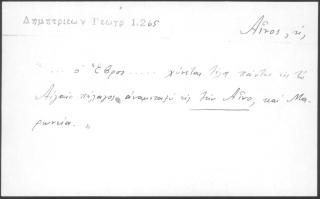 Δημητριεων Γεωγρ 1.265
Αἶνος, ἡ,
... ὁ Ἕβρος ..... χύνεται ... πάντων εἰς τὸ
Αἰγαῖο πέλαγος ἀναμεταξὺ εἰς τὴν Αἶνο, καὶ Μα-
ρωνεία. "